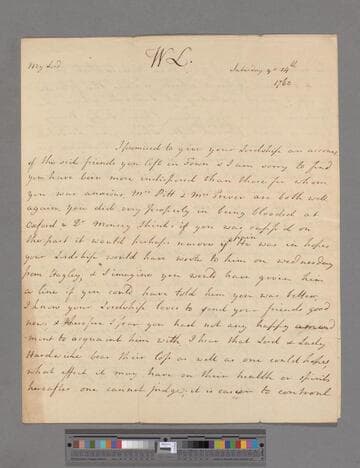 W L.
My Lord
Saturday ye 14th
1760
I promised to give your Lordship an account
of the sick friends you left in Town & I am sorry to find
you have been more indisposed than those for whom
you was anxious, Mrs Pitt & Mrs are both well
again. you did very properly in being blooded at
Oxford & Dr Monsey thinks if you was cupp'd on
the part it would perhaps remove ye pain He was in hopes
your Lordship would have wrote to him on wednesday
from Hagley, & I imagine you would have given him
a line if you cou'd have told him you was better,
I know your Lordship loves to send your friends good
news & therefore I fear you had not any happy
ment to acquaint him with, I hear that Lord & Lady
Hardwicke bear their loss as well as one could hope,
what effect it may have on their health or spirits
hereafter one cannot judge, it is easier to controul